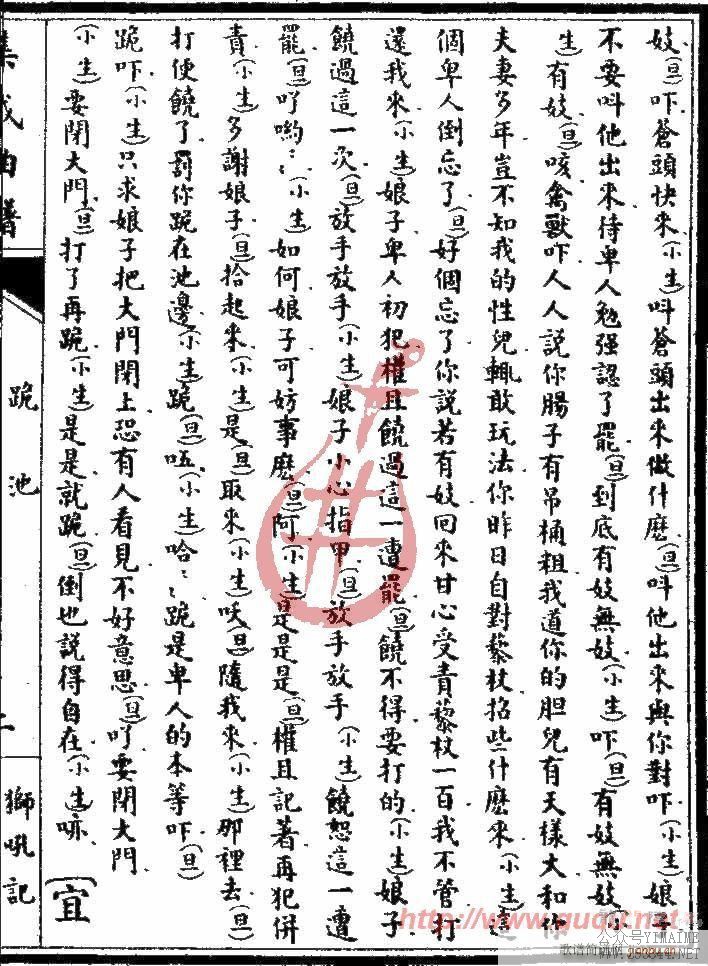 妓(旦)吓蒼頭快來(小生)呌蒼頭出來做什麽(旦)呌他出來與你對吓(小生)娘子
不要呌他出來待卑人勉强認了罷(旦)到底有妓無妓(小生)吓(旦)有妓無妓(小
生)有妓(旦)咳禽獸吓人人說你腸子有吊桶粗我道你的胆兒有天樣大和你
夫妻多年豈不知我的性兒輒敢玩法你昨日自對藜杖掐些什麽來(小生)這
個卑人倒忘了(旦)好個忘了你説若有妓回來甘心受責藜杖一百我不管打
還我來(小生)娘子卑人初犯權且饒過這一遭罷(旦)饒不得要打的(小生)娘子
饒過這一次(旦)放手放手(小生)娘子小心指甲(旦)放手放手(小生)饒恕這一遭
罷(旦)吖喲〻(小生)如何娘子可妨事麽(旦)阿(小生)是是是(旦)權且記著再犯併
責(小生)多謝娘子(旦)拾起來(小生)是(旦)取來(小生)呋(旦)隨我來(小生)那裡去(旦)
打便饒了罰你跪在池邊(小生)跪(旦)𠵽(小生)哈〻跪是卑人的本等吓(旦)
跪吓(小生)只求娘子把大門閉上恐有人看見不好意思(旦)吖要閉大門
(小生)要閉大門(旦)打了再跪(小生)是是就跪(旦)倒也説得自在(小生)㖡(宜
集成曲譜
跪池
獅吼記
http://www.guqu.net
公众号YIMAIME
歌谱简